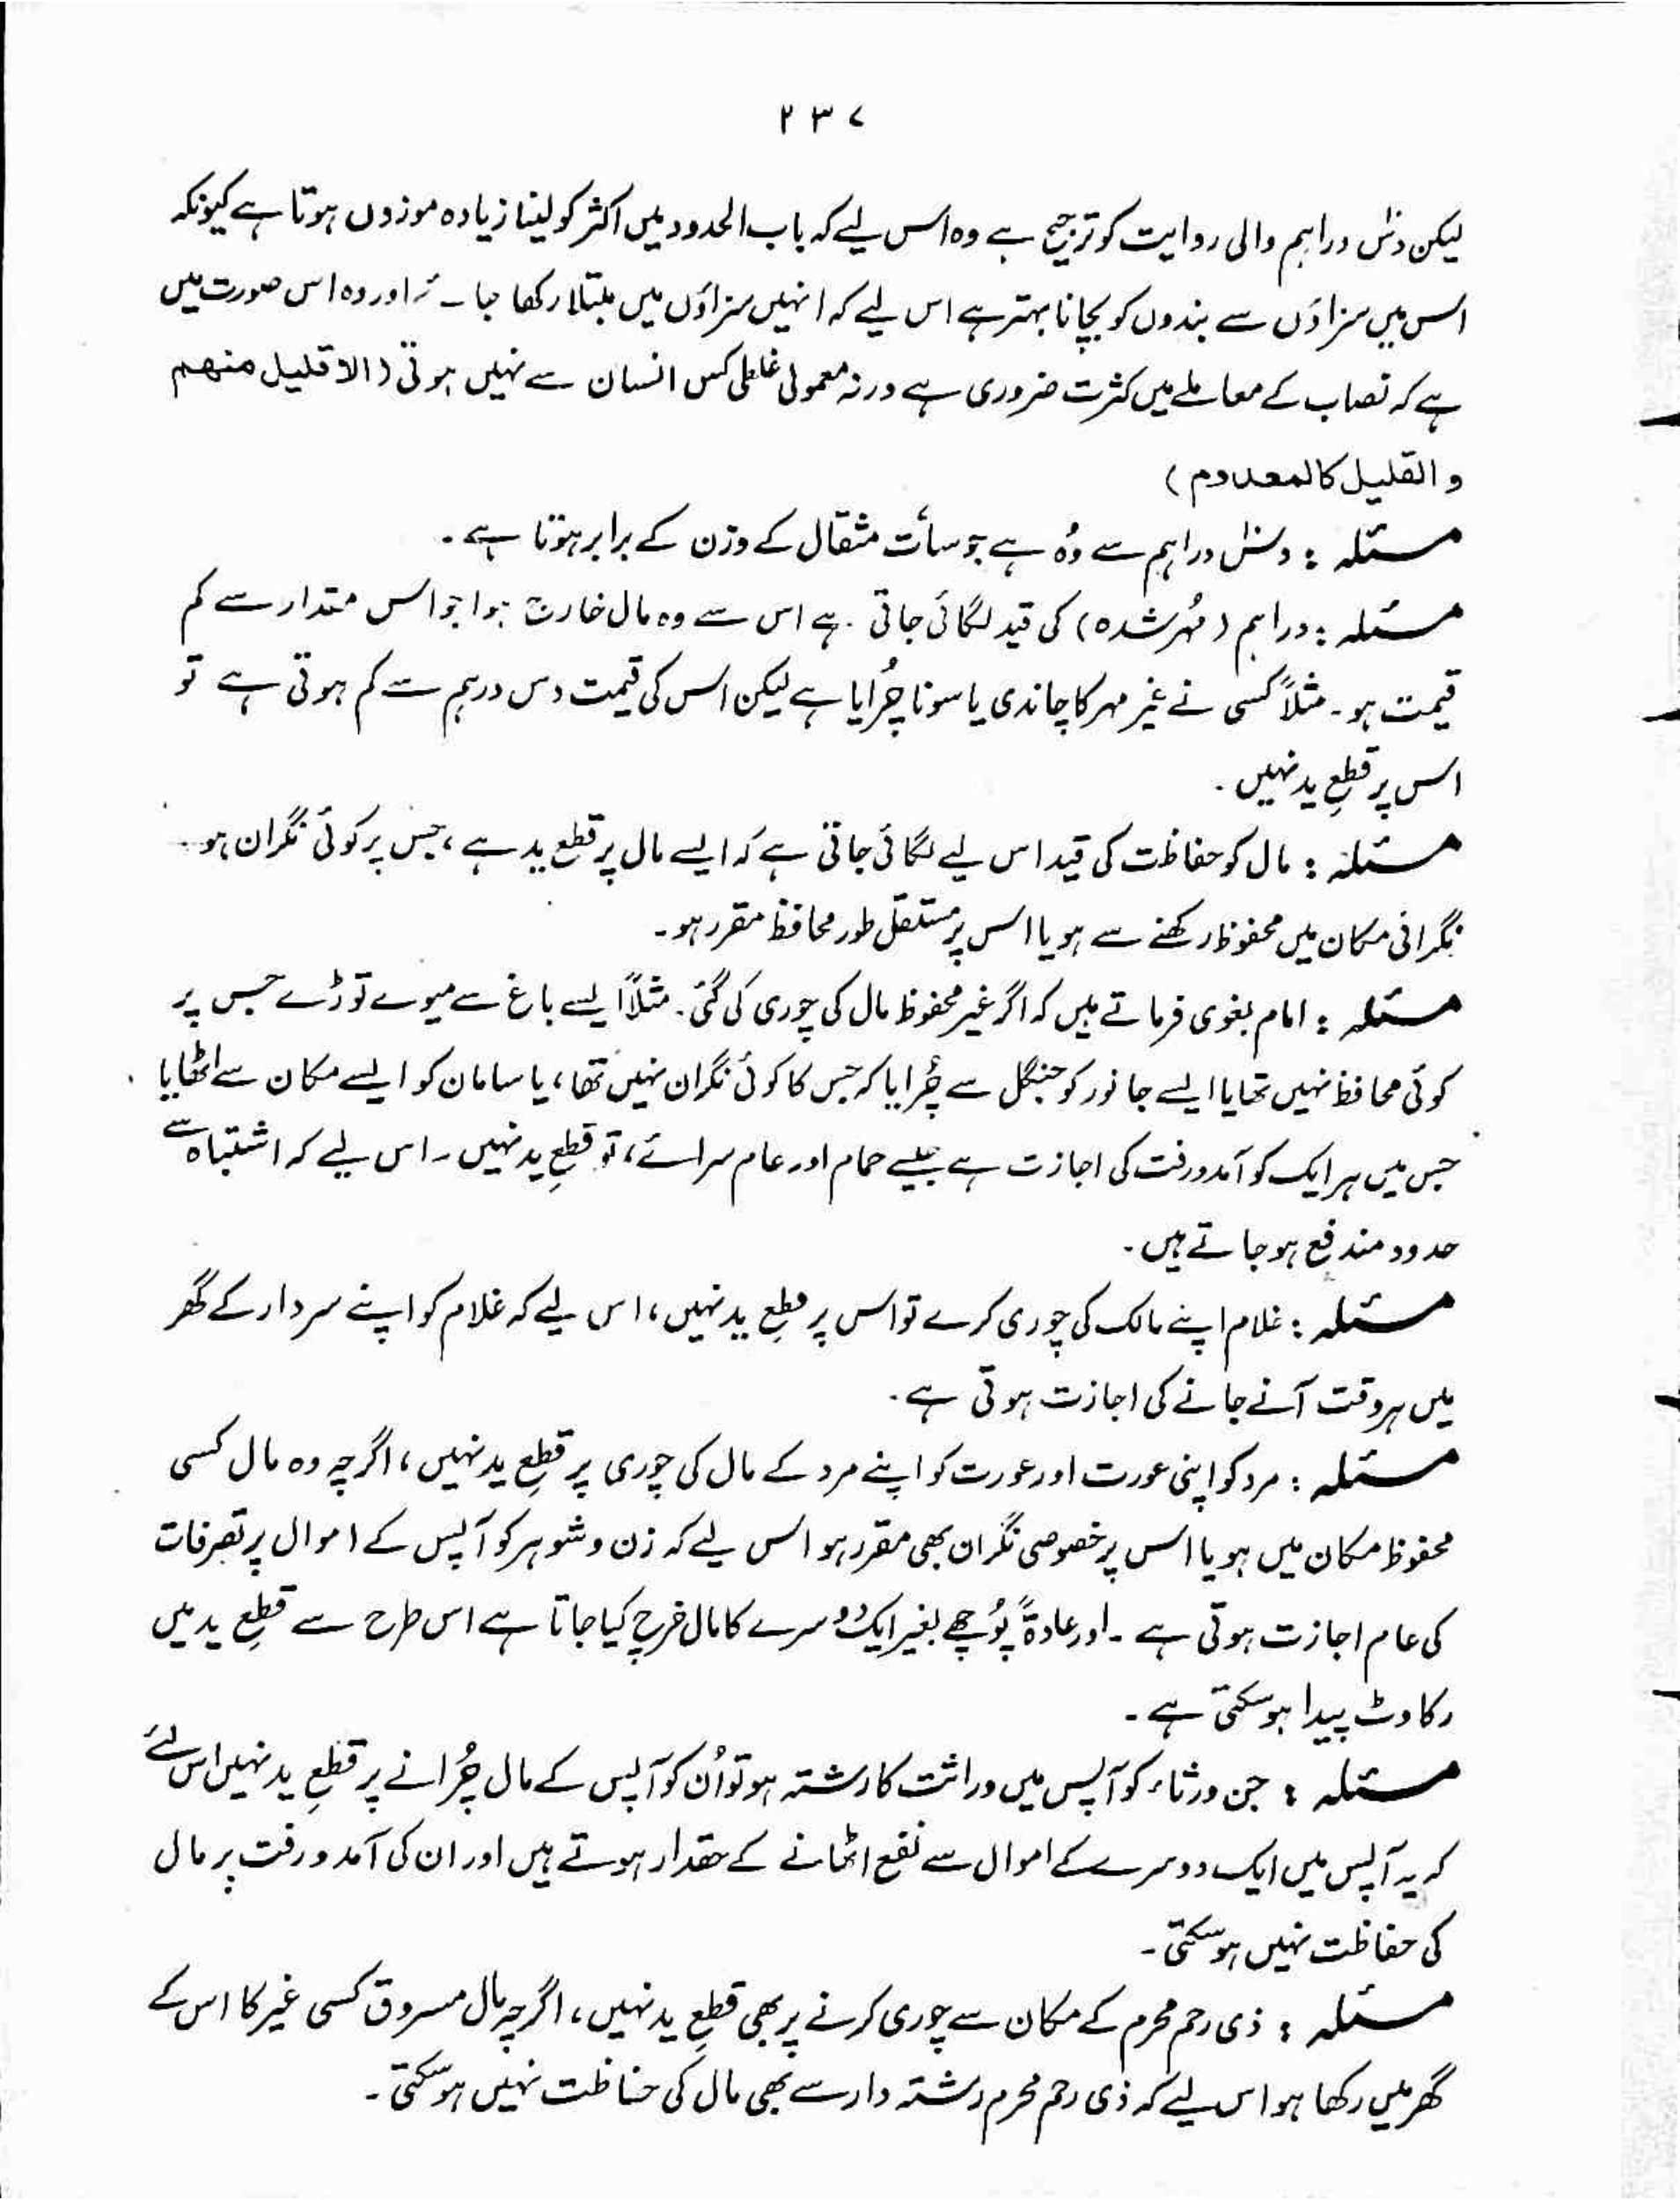 ۲۳۷
لیکن دس دراہم والی روایت کو ترجیح ہے وہ اس لیے کہ باب الحدود میں اکثر کو لینا زیادہ موزوں ہوتا ہے کیونکہ
اس میں سزاؤں سے بندوں کو بچانا بہتر ہے اس لیے کہ انہیں سزاؤں میں مبتلا رکھا جائے اور وہ اس صورت میں
ہے کہ نصاب کے معاملے میں کثرت ضروری ہے ورنہ معمولی غلطی کس انسان سے نہیں ہوتی (الا قلیل منھم
و القلیل کالمعدوم)
مسئلہ : دس دراہم سے وُہ ہے جو سات مثقال کے وزن کے برابر ہوتا ہے۔
مسئلہ : دراہم (مُہر شدہ) کی قید لگائی جاتی ہے اس سے وہ مال خارج ہوا جو اس مقدار سے کم
قیمت ہو۔ مثلاً کسی نے غیر مہر کا چاندی یا سونا چُرایا ہے لیکن اس کی قیمت دس درہم سے کم ہوتی ہے تو
اس پر قطعِ ید نہیں۔
مسئلہ : مال کو حفاظت کی قید اس لیے لگائی جاتی ہے کہ ایسے مال پر قطع ید ہے، جس پر کوئی نگران ہو۔
نگرانی مکان میں محفوظ رکھنے سے ہو یا اس پر مستقل طور محافظ مقرر ہو۔
مسئلہ : امام بغوی فرماتے ہیں کہ اگر غیر محفوظ مال کی چوری کی گئی۔ مثلاً ایسے باغ سے میوے توڑے جس پر
کوئی محافظ نہیں تھا یا ایسے جانور کو جنگل سے چُرایا کہ جس کا کوئی نگران نہیں تھا، یا سامان کو ایسے مکان سے اٹھایا
جس میں ہر ایک کو آمد ورفت کی اجازت ہے جیسے حمام اور عام سرائے، تو قطعِ ید نہیں۔ اس لیے کہ اشتباہ سے
حدود مندفع ہو جاتے ہیں۔
مسئلہ : غلام اپنے مالک کی چوری کرے تو اس پر قطعِ ید نہیں، اس لیے کہ غلام کو اپنے سردار کے گھر
میں ہر وقت آنے جانے کی اجازت ہوتی ہے۔
مسئلہ : مرد کو اپنی عورت اور عورت کو اپنے مرد کے مال کی چوری پر قطعِ ید نہیں، اگرچہ وہ مال کسی
محفوظ مکان میں ہو یا اس پر خصوصی نگران بھی مقرر ہو اس لیے کہ زن و شوہر کو آپس کے اموال پر تصرفات
کی عام اجازت ہوتی ہے۔ اور عادۃً پُوچھے بغیر ایک دوسرے کا مال خرچ کیا جاتا ہے اس طرح سے قطعِ ید میں
رکاوٹ پیدا ہو سکتی ہے۔
مسئلہ : جن ورثاء کو آپس میں وراثت کا رشتہ ہو تو اُن کو آپس کے مال چُرانے پر قطعِ ید نہیں اس لئے
کہ یہ آپس میں ایک دوسرے کے اموال سے نفع اٹھانے کے حقدار ہوتے ہیں اور ان کی آمد و رفت پر مال
کی حفاظت نہیں ہو سکتی۔
مسئلہ : ذی رحم محرم کے مکان سے چوری کرنے پر بھی قطعِ ید نہیں، اگرچہ مال مسروق کسی غیر کا اس کے
گھر میں رکھا ہو اس لیے کہ ذی رحم محرم رشتہ دار سے بھی مال کی حفاظت نہیں ہو سکتی۔